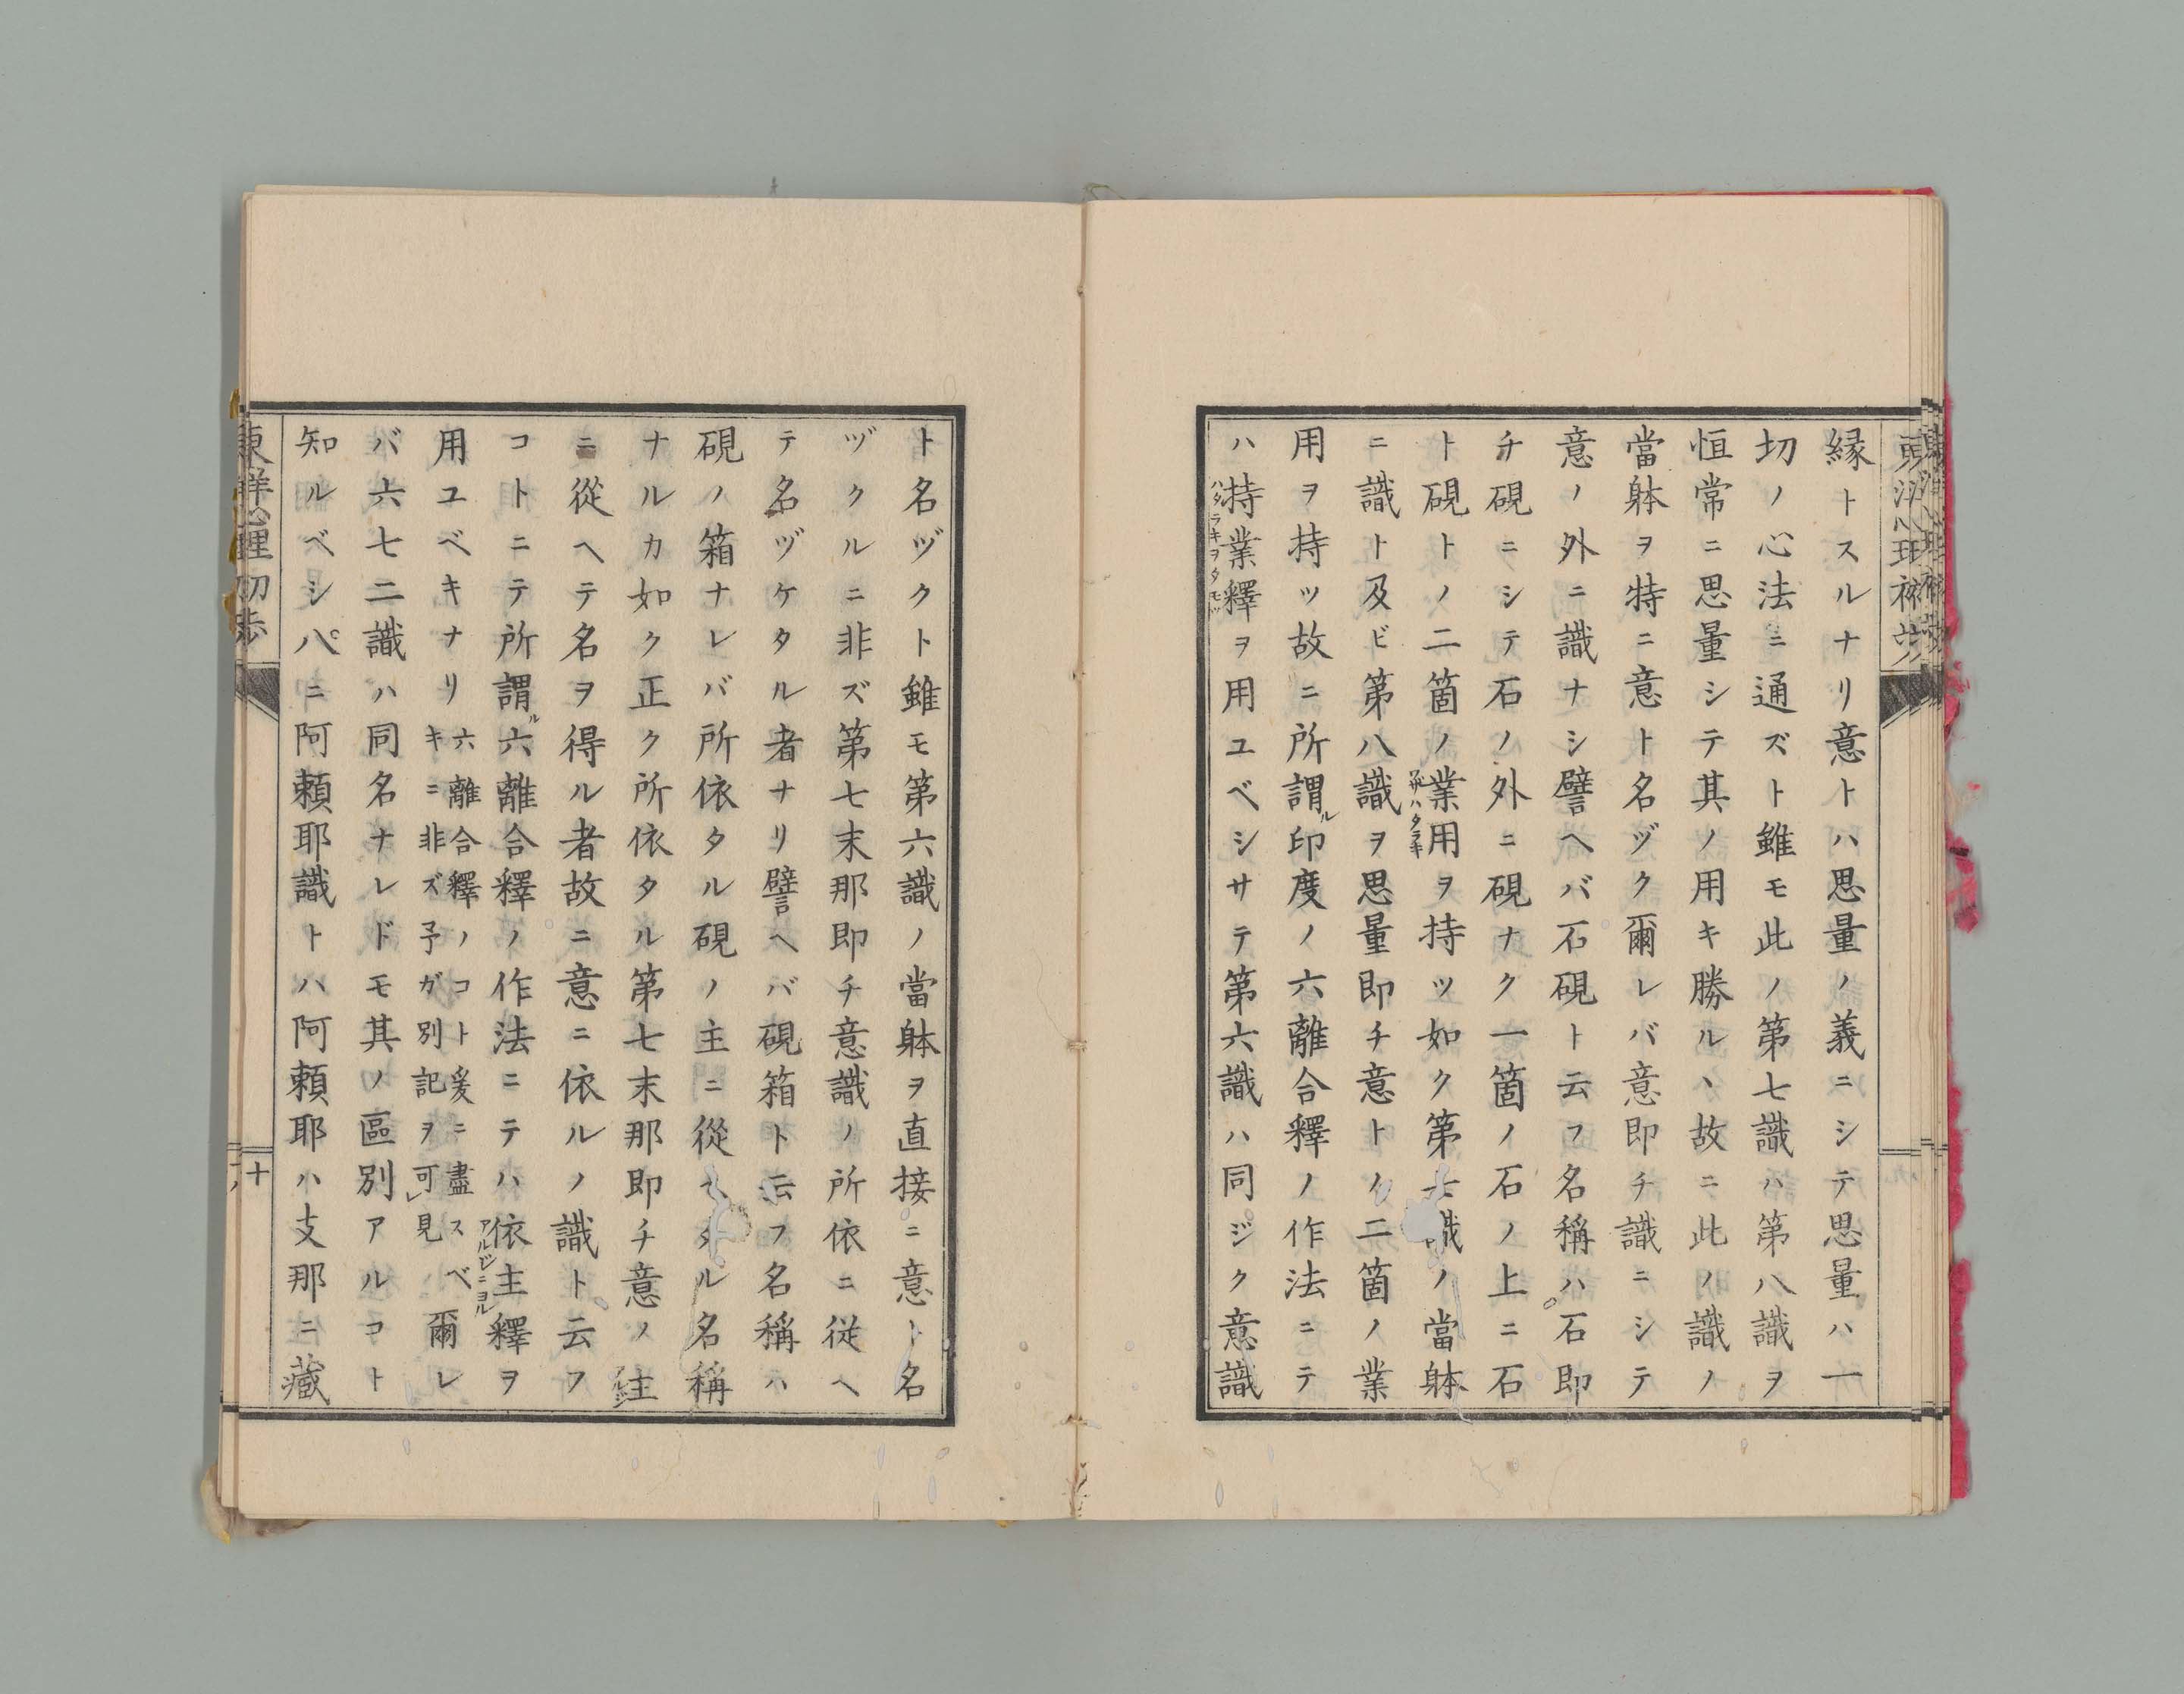 縁トスルナリ意トハ思量ノ義ニシテ思量ハ一
切ノ心法ニ通ズト雖モ此ノ第七識ハ第八識ヲ
恒常ニ思量シテ其ノ用キ勝ルヽ故ニ此ノ識ノ
當躰ヲ特ニ意ト名ヅク爾レバ意即チ識ニシテ
意ノ外ニ識ナシ譬ヘバ石硯ト云フ名稱ハ石即
チ硯ニシテ石ノ外ニ硯ナク一箇ノ石ノ上ニ石
ト硯トノ二箇ノ業用ヲ持ツ如ク第七識ノ當躰
ニ識ト及ビ第八識ヲ思量即チ意トノ二箇ノ業
用ヲ持ツ故ニ所謂ル印度ノ六離合釋ノ作法ニテ
ハ持業釋ヲ用ユベシサテ第六識ハ同ジク意識
ハタラキヲタモツ
ト名ヅクト雖モ第六識ノ當躰ヲ直接ニ意ト名
ヅクルニ非ズ第七末那即チ意識ノ所依ニ従ヘ
テ名ヅケタル者ナリ譬ヘバ硯箱ト云フ名稱ハ
硯ノ箱ナレバ所依タル硯ノ主ニ從ヘタル名稱
ナルカ如ク正ク所依タル第七末那即チ意ノ主
ニ從ヘテ名ヲ得ル者故ニ意ニ依ルノ識ト云フ
コトニテ所謂ル六離合釋ノ作法ニテハ依主釋ヲ
アルジニヨル
用ユベキナリ六離合釋ノコト爰ニ盡スベキニ非ズ予ガ別記ヲ可レ見爾レ
バ六七二識ハ同名ナレドモ其ノ區別アルコト
知ルベシ八ニ阿頼耶識トハ阿頼耶ハ支那ニ藏
東洋心理初歩
十